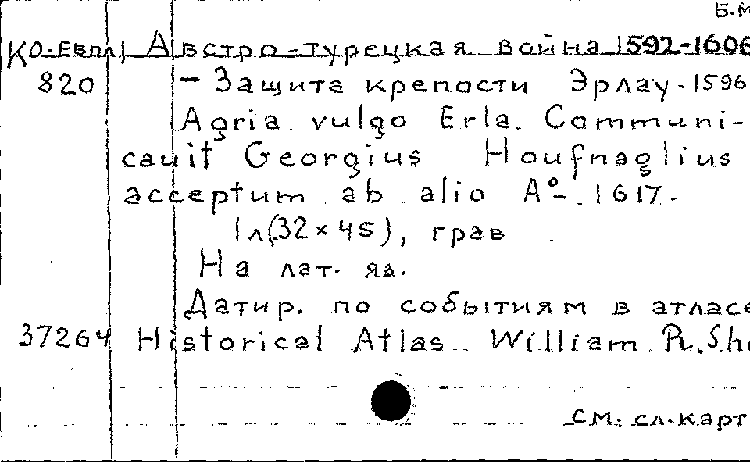 Б.М
КО-Евпл Австро-турецкая война 1592-1606
820 - Защита крепости Эрлау. 1596
Agria vulgo Erla. Communi-
cavit Georgius Houfnaglius
acceptum ab alio A°- 1617.
1л(32×45), грав
На лат. яз.
Датир. по событиям в атласе
37264 Historical Atlas. William R. She
см. сл. карт